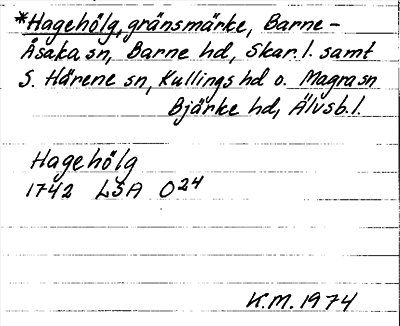 *Hagehölg, gränsmärke, Barne-
Åsaka sn, Barne hd, Skar. l. samt
S. Härene sn, Kullings hd o. Magra sn
Bjärke hd, Älvsb. l.
Hagehölg
1742 LSA O24
K.M. 1974